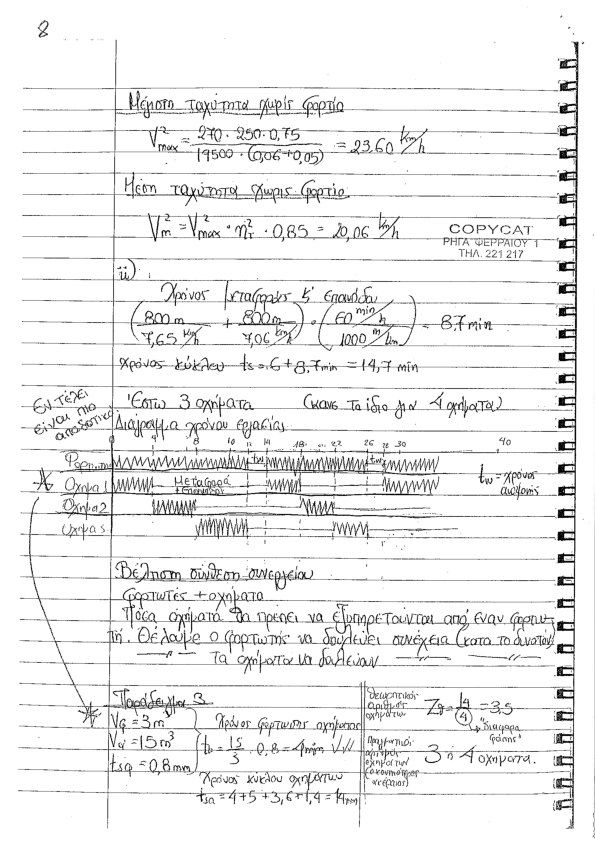 8
Μέγιστη ταχύτητα χωρίς φορτίο
V²max = 270 · 250 · 0,75 / 19500 · (0,06 + 0,05) = 23,60 km/h
Μέση ταχύτητα χωρίς φορτίο
V²m = V²max · η²τ · 0,85 = 20,06 km/h
COPYCAT
ΡΗΓΑ ΦΕΡΡΑΙΟΥ 1
ΤΗΛ. 221 217
ii)
Χρόνος μεταφοράς & επανόδου
(800 m / 7,65 km/h + 800 m / 7,06 km/h) · (60 min/h / 1000 m/km) = 8,7 min
Χρόνος κύκλου ts = 6 + 8,7 min = 14,7 min
Εν τέλει είναι πιο αποδοτικό
Έστω 3 οχήματα (κάνε το ίδιο για 4 οχήματα)
Διάγραμμα χρόνου εργασίας
0 4 8 10 12 14 18 22 26 28 30 40
Φορτωτής tw tw
Όχημα 1 Μεταφορά + επάνοδος
tw = χρόνος αναμονής
Όχημα 2
Όχημα 3
Βέλτιστη σύνθεση συνεργείου
φορτωτές + οχήματα
Πόσα οχήματα θα πρέπει να εξυπηρετούνται από έναν φορτω-
τή. Θέλουμε ο φορτωτής να δουλεύει συνέχεια (κατά το δυνατόν)
—"— Τα οχήματα να δουλεύουν —"— —"—
Παράδειγμα 3
VG = 3 m³
Vα = 15 m³
tsg = 0,8 min
Χρόνος φόρτωσης οχήματος
tb = 15/3 · 0,8 = 4 min
Χρόνος κύκλου οχημάτων
tsa = 4 + 5 + 3,6 + 1,4 = 14 min
Θεωρητικός αριθμός οχημάτων Zθ = 14/4 = 3,5
Πραγματικός αριθμός οχημάτων
3 ή 4 οχήματα.